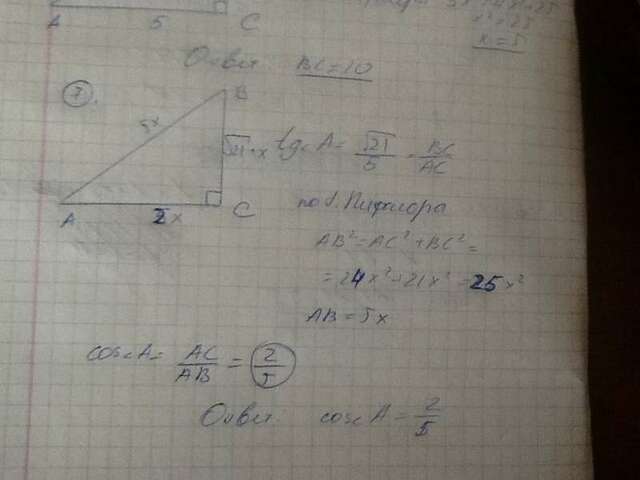 A 5 C
x = 5
Ответ: BC = 10
7.
B
5x
√21·x
A
2x
C
tg∠A = √21/5 = BC/AC
по т. Пифагора
AB² = AC² + BC² =
= 24x² + 21x² = 25x²
AB = 5x
cos∠A = AC/AB = 2/5
Ответ: cos∠A = 2/5